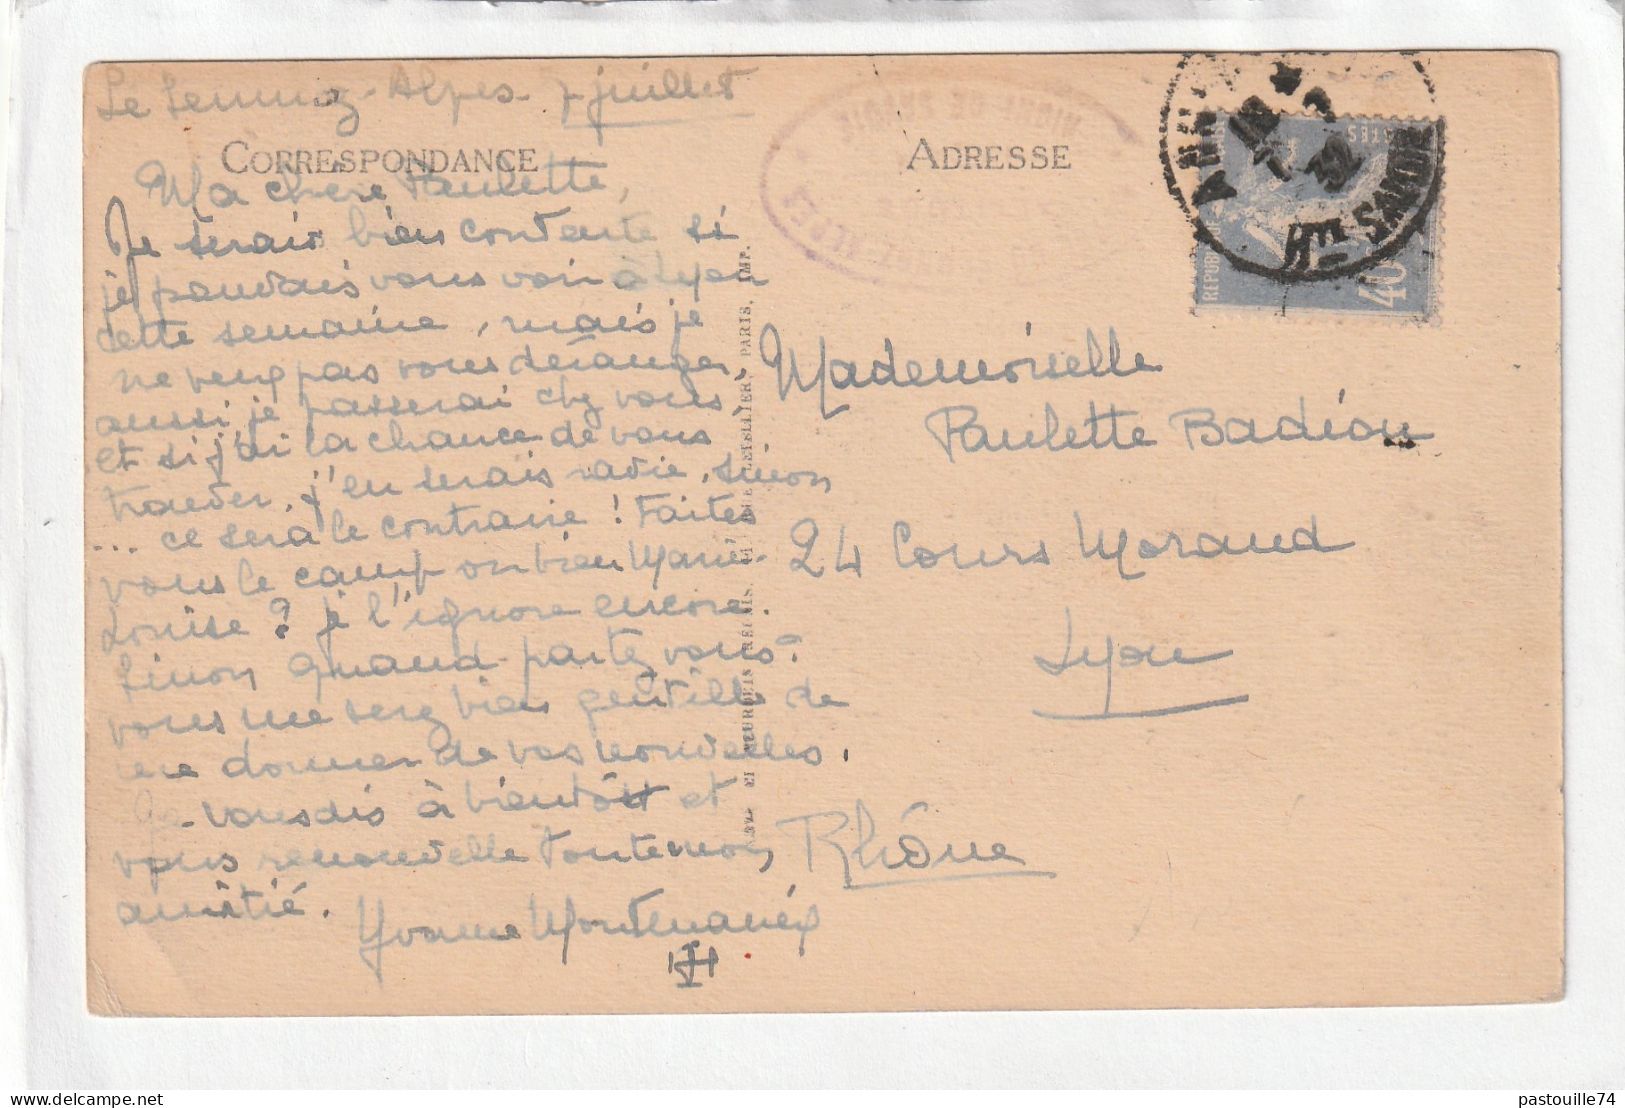 Le Semnoz-Alpes 7 juillet
CORRESPONDANCE
Ma chère Paulette,
Je serais bien contente si
je pouvais vous voir à Lyon
cette semaine, mais je
ne veux pas vous déranger,
aussi je passerai chez vous
et si j'ai la chance de vous
trouver, j'en serais ravie, sinon
... ce sera le contraire ! Faites
vous le camp ou bien Marie-
Louise ? je l'ignore encore.
Sinon quand partez vous ?
vous me serez bien gentille de
me donner de vos nouvelles.
Je vous dis à bientôt et
vous renouvelle toute mon
amitié.
Yvonne
ADRESSE
Mademoiselle
Paulette Badion
24 Cours Morand
Lyon
Rhône
HTE SAVOIE
32
40
POSTES
pastouille74
delcampe.net